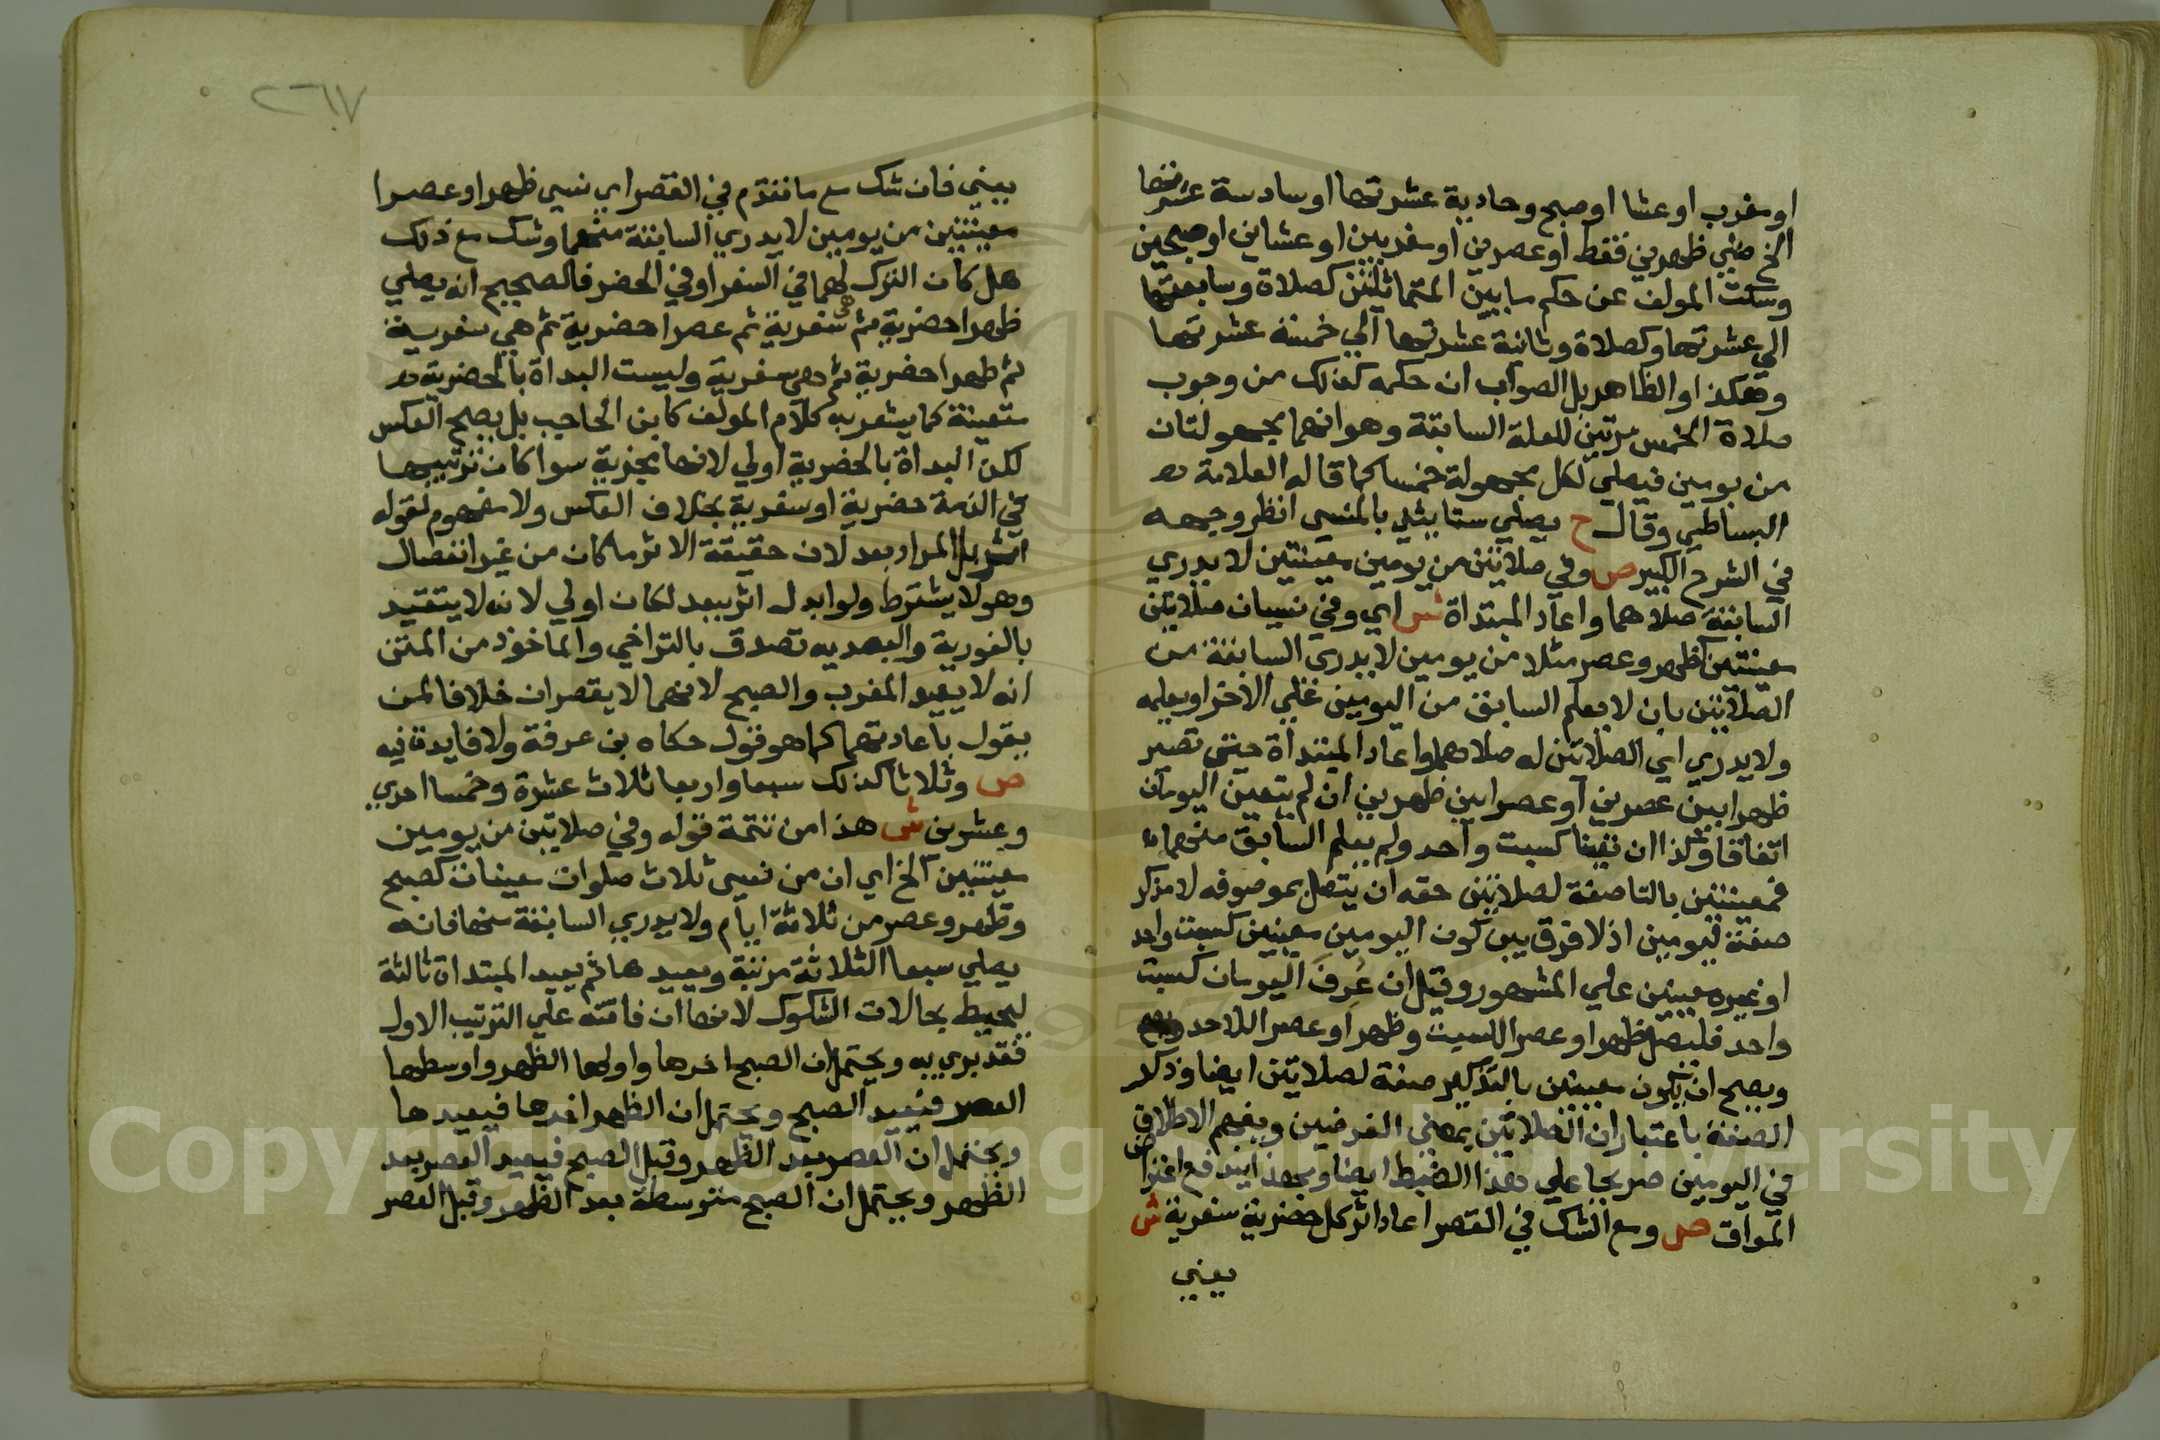 او مغرب او عشا او صبح وحادية عشرتها او سادسة عشرتها
الخ صلي ظهرين فقط او عصرين او مغربين او عشاين او صبحين
وسكت المولف عن حكم ما بين المتماثلتين كصلاة وسابعتها
الي عشرتها وكصلاة وثانية عشرتها الي خمسة عشرتها
وهكذا والظاهر بل الصواب ان حكمه كذلك من وجوب
صلاة الخمس مرتين للعلة السابقة وهو انهما مجهولتان
من يومين فيصلي لكل مجهولة خمسا كما قاله العلامة
البساطي وقال ح يصلي ستا يثلي بالمنسي انظر وجهه
في الشرح الكبير ص وفي صلاتين من يومين معينتين لا يدري
السابقة صلاهما واعاد المبتداة ش اي وفي نسيان صلاتين
معينتين كظهر وعصر مثلا من يومين لا يدري السابقة من
الصلاتين بان لا يعلم السابق من اليومين علي الاخر او يعلمه
ولا يدري اي الصلاتين له صلاهما واعاد المبتداة حتي تصير
ظهرا بين عصرين او عصرا بين ظهرين ان لم يتعين اليومان
اتفاقا وكذا ان تعينا كسبت واحد ولم يعلم السابق منهما
فمعينتين بالتا صفة لصلاتين حقه ان يتصل بموصوفه لا مذكر
صفة ليومين اذ لا فرق بين كون اليومين معينين كسبت واحد
او غيره معينين علي المشهور وقيل ان عرف اليومان كسبت
واحد فليصل ظهرا وعصرا للسبت وظهرا وعصرا للاحد
ويصح ان يكون معينين بالتذكير صفة لصلاتين ايضا وذكر
الصفة باعتبار ان الصلاتين بمعني الفرضين ويفهم الاطلاق
في اليومين صريحا علي هذا الضبط ايضا وبهذا يندفع اعتراض
المواق ص ومع الشك في القصر اعاد اثر كل حضرية سفرية ش
يعني
٢٦٧
يعني فان شك مع ما تقدم في القصر اي نسي ظهرا وعصرا
معينتين من يومين لا يدري السابقة منهما وشك مع ذلك
هل كان الترك لهما في السفر او في الحضر فالصحيح انه يصلي
ظهرا حضرية ثم سفرية ثم عصرا حضرية ثم هي سفرية
ثم ظهرا حضرية ثم هي سفرية وليست البداة بالحضرية
متعينة كما يشعر به كلام المولف كابن الحاجب بل يصح العكس
لكن البداة بالحضرية اولي لانها مجزية سوا كان ترتيبها
في الذمة حضرية او سفرية بخلاف العكس ولا مفهوم لقوله
اثر بل المراد بعد لان حقيقة الاثر ما كان من غير انفصال
وهو لا يشترط ولو ابدل اثر ببعد لكان اولي لانه لا يتقيد
بالفورية والبعديه تصدق بالتراخي والماخوذ من المتن
انه لا يعيد المغرب والصبح لانهما لا يقصران خلافا لمن
يقول باعادتهما كما هو قول حكاه بن عرفة ولا فايدة فيه
ص وثلاثا كذلك سبعا واربعا ثلاث عشرة وخمسا احدي
وعشرين ش هذا من تتمة قوله وفي صلاتين من يومين
معينتين الخ اي ان من نسي ثلاث صلوات معينات كصبح
وظهر وعصر من ثلاثة ايام ولا يدري السابقة منها فانه
يصلي سبعا الثلاثة مرتبة ويعيدها ثم يعيد المبتداة ثالثة
ليحيط بحالات الشكوك لانها ان فاتته علي الترتيب الاول
فقد بري به ويحتمل ان الصبح اخرها واولها الظهر واوسطها
العصر فيعيد الصبح ويحتمل ان الظهر اخرها فيعيدها
ويحتمل ان العصر بعد الظهر وقبل الصبح فيعيد العصر بعد
الظهر ويحتمل ان الصبح متوسطة بعد الظهر وقبل العصر
Copyright © King Saud University